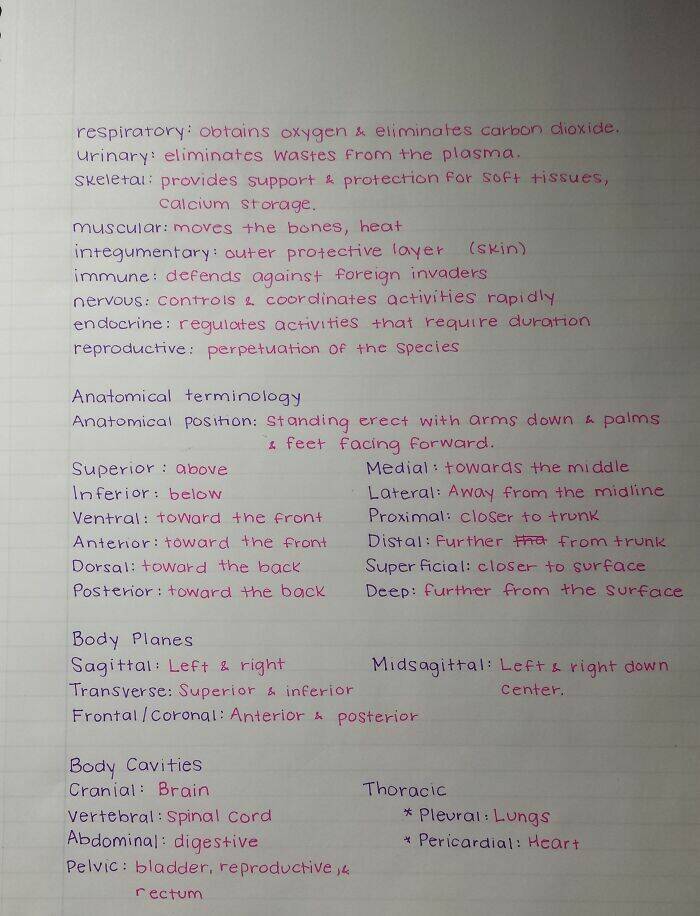 respiratory: obtains oxygen & eliminates carbon dioxide.
urinary: eliminates wastes from the plasma.
skeletal: provides support & protection for soft tissues,
calcium storage.
muscular: moves the bones, heat
integumentary: outer protective layer (skin)
immune: defends against foreign invaders
nervous: controls & coordinates activities rapidly
endocrine: regulates activities that require duration
reproductive: perpetuation of the species
Anatomical terminology
Anatomical position: standing erect with arms down & palms
& feet facing forward.
Superior: above Medial: towards the middle
Inferior: below Lateral: Away from the midline
Ventral: toward the front Proximal: closer to trunk
Anterior: toward the front Distal: further tha from trunk
Dorsal: toward the back Superficial: closer to surface
Posterior: toward the back Deep: further from the surface
Body Planes
Sagittal: Left & right Midsagittal: Left & right down
Transverse: Superior & inferior center.
Frontal/coronal: Anterior & posterior
Body Cavities
Cranial: Brain Thoracic
Vertebral: Spinal cord * Pleural: Lungs
Abdominal: digestive * Pericardial: Heart
Pelvic: bladder, reproductive, &
rectum